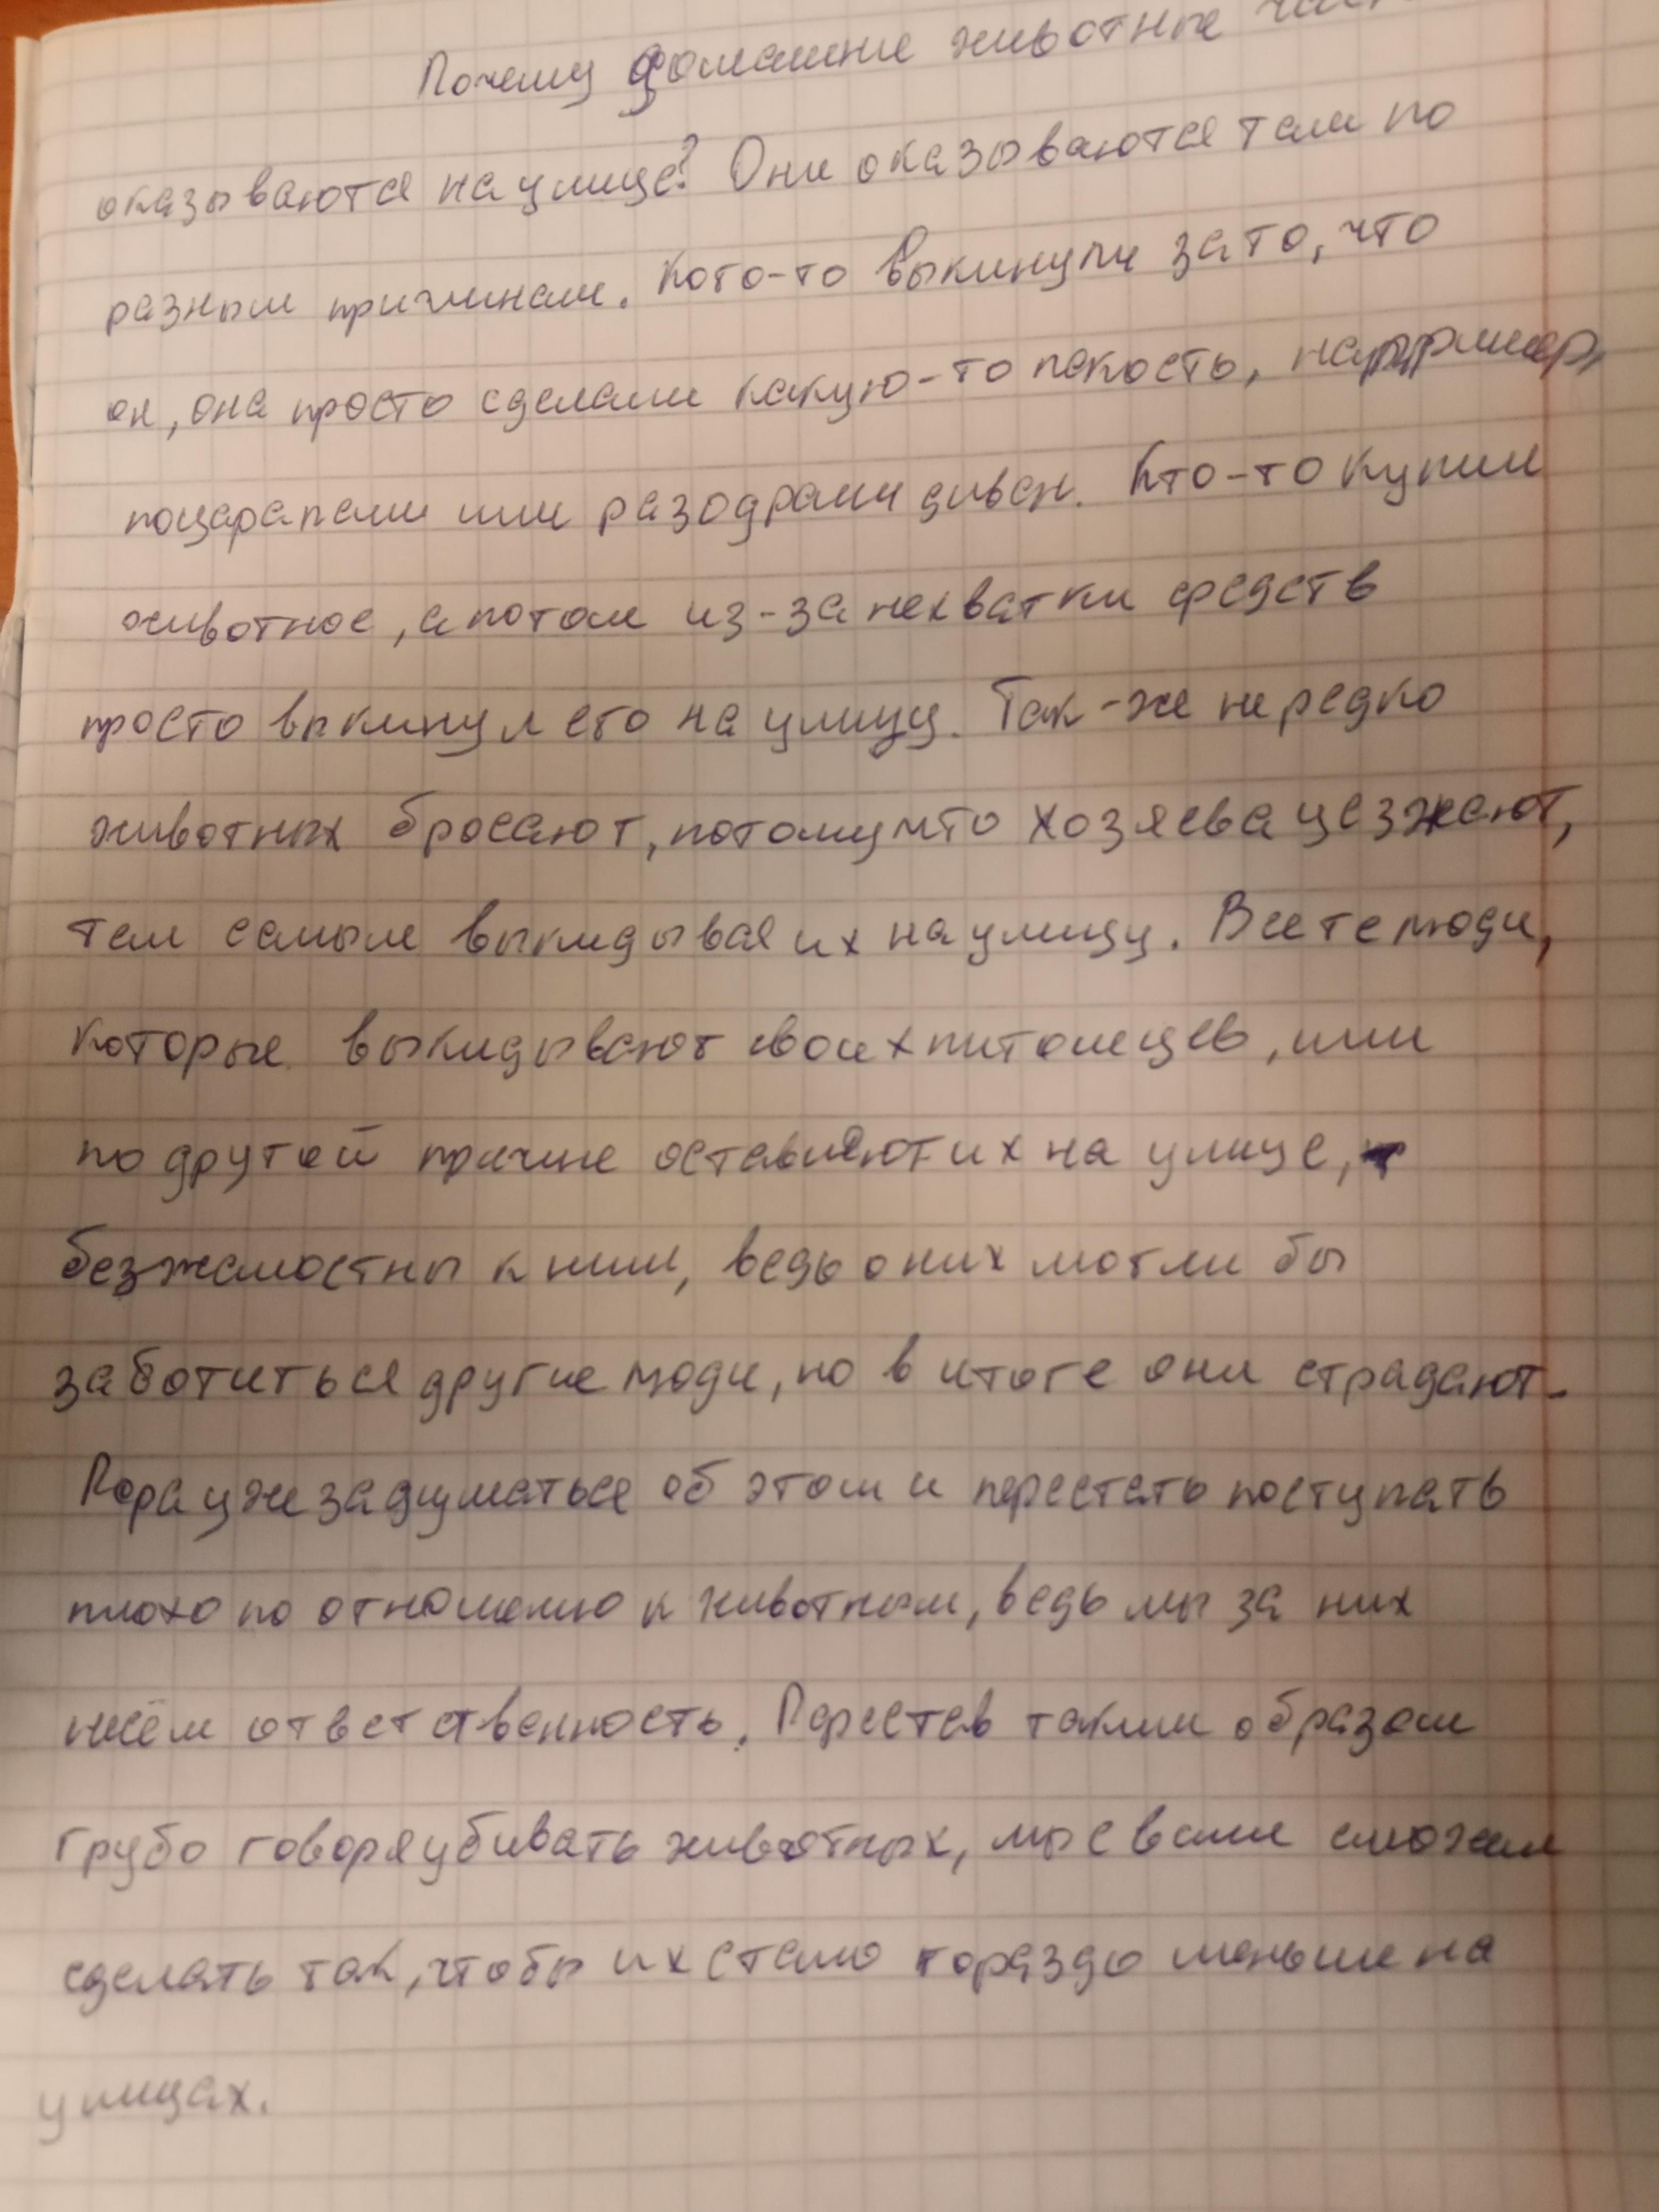 Почему домашние животные
оказываются на улице? Они оказываются там по
разным причинам. Кого-то выкинули за то, что
он, она просто сделали какую-то пакость, например,
поцарапали или разодрали диван. Кто-то купил
животное, а потом из-за нехватки средств
просто выкинул его на улицу. Так-же нередко
животных бросают, потому что хозяева уезжают,
тем самым выкидывая их на улицу. Все те люди,
которые выкидывают своих питомцев, или
по другой причине оставляют их на улице,
безжалостны к ним, ведь о них могли бы
заботиться другие люди, но в итоге они страдают.
Пора уже задуматься об этом и перестать поступать
плохо по отношению к животным, ведь мы за них
несём ответственность. Перестав таким образом
грубо говоря убивать животных, мы с вами сможем
сделать так, чтобы их стало гораздо меньше на
улицах.